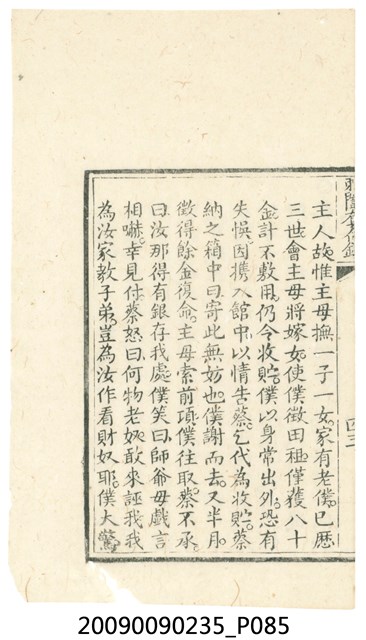 主人故惟主母撫一子一女家有老僕已歷
三世會主母將嫁女使僕徵田租僅獲八十
金計不敷用仍令收貯僕以身常出外恐有
失悞因携入館中以情告蔡乞代為收貯蔡
納之箱中曰寄此無妨也僕謝而去又半月
徵得餘金復命主母索前項僕往取蔡不承
曰汝那得有銀存我處僕笑曰師爺毋戲言
相嚇幸見付蔡怒曰何物老奴敢來誣我我
為汝家教子弟豈為汝作看財奴耶僕大驚
20090090235_P085